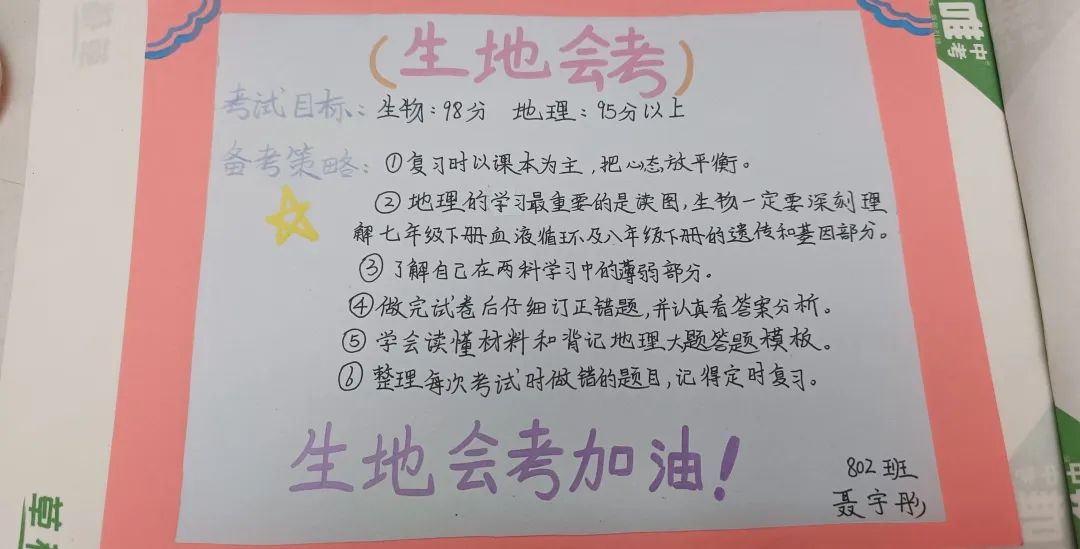 (生地会考)
考试目标：生物：98分 地理：95分以上
备考策略：①复习时以课本为主，把心态放平衡。
②地理的学习最重要的是读图，生物一定要深刻理
解七年级下册血液循环及八年级下册的遗传和基因部分。
③了解自己在两科学习中的薄弱部分。
④做完试卷后仔细订正错题，并认真看答案分析。
⑤学会读懂材料和背记地理大题答题模板。
⑥整理每次考试时做错的题目，记得定时复习。
生地会考加油！
802班
聂宇彤
唯
中考
草